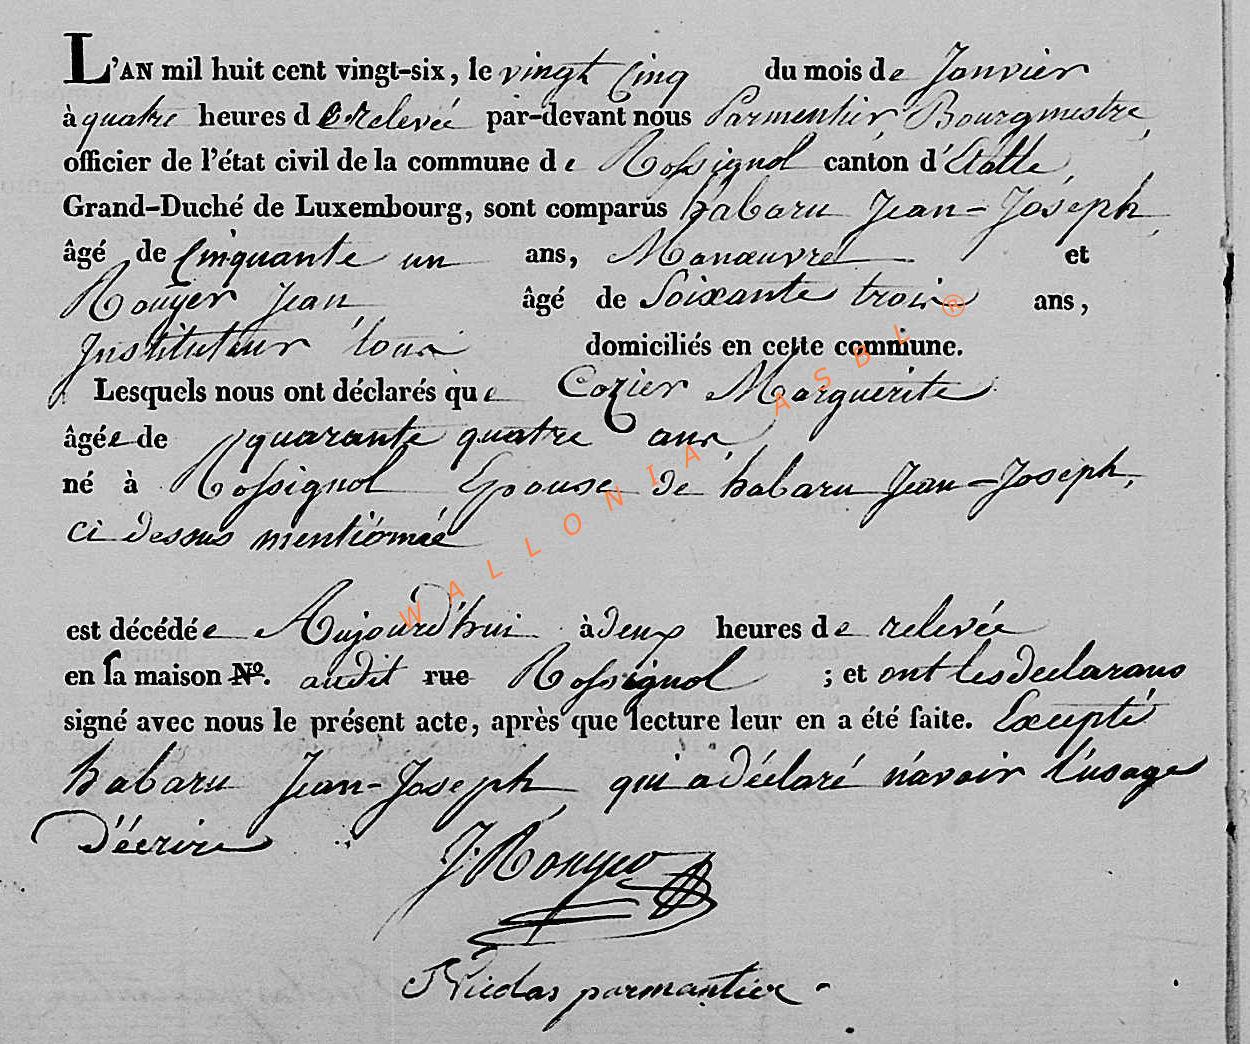 L'AN mil huit cent vingt-six, le vingt Cinq du mois de Janvier
à quatre heures de Relevée par-devant nous Parmentier, Bourgmestre,
officier de l'état civil de la commune de Rossignol canton d'Etalle,
Grand-Duché de Luxembourg, sont comparus habaru Jean-Joseph,
âgé de Cinquante un ans, Manœuvre et
Rouyer Jean, âgé de Soixante trois ans,
Instituteur tous domiciliés en cette commune.
Lesquels nous ont déclarés que Cozier Marguerite
âgée de quarante quatre ans,
né à Rossignol Epouse de habaru Jean-Joseph,
ci dessus mentionnée
est décédée Aujourd'hui à deux heures de relevée
en sa maison No. audit rue Rossignol ; et ont les declarans
signé avec nous le présent acte, après que lecture leur en a été faite. Excepté
habaru Jean-Joseph qui a déclaré n'avoir l'usage
d'écrire
J. Rouyer
Nicolas parmantier
WALLONIA ASBL ®